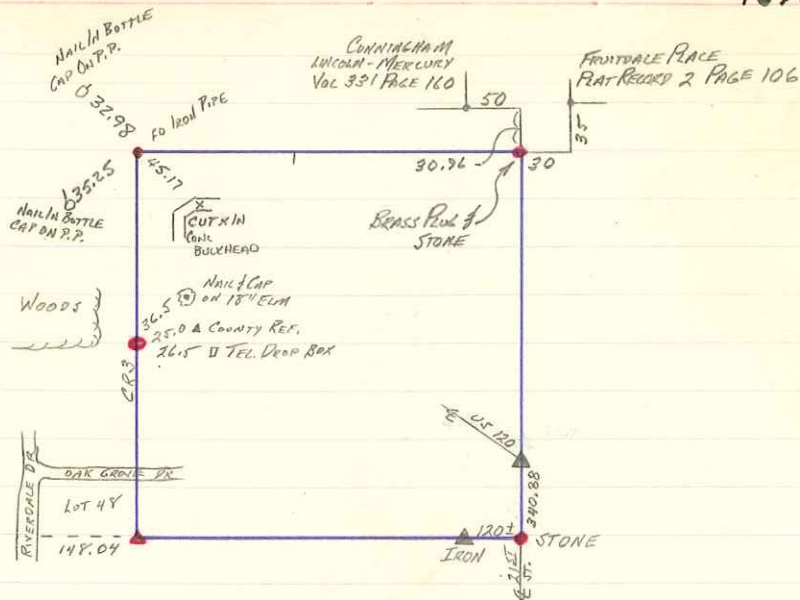 NAIL IN BOTTLE
CAP ON P.P.
32.98
FD IRON PIPE
CUNNINGHAM
LINCOLN-MERCURY
VOL 331 PAGE 160
FRUITDALE PLACE
PLAT RECORD 2 PAGE 106
50
35
30.96
30
45.17
35.25
NAIL IN BOTTLE
CAP ON P.P.
X
CUT X IN
CONC
BULKHEAD
BRASS PLUG &
STONE
WOODS
36.5
NAIL & CAP
ON 18" ELM
25.0 COUNTY REF.
26.5 TEL. DROP BOX
CR3
℄ US 120
RIVERDALE DR
OAK GROVE DR
LOT 48
148.04
340.88
120±
IRON
STONE
℄ 21ST
ST.